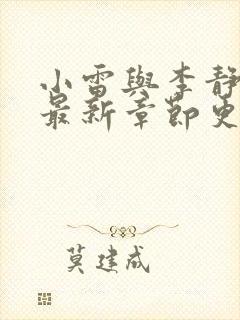 小雷與李靜
最新章節更
莫建成